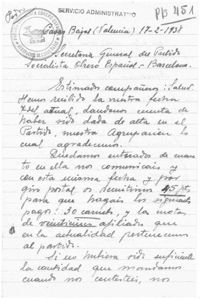 SERVICIO ADMINISTRATIVO
PB 451
Casas Bajas (Valencia) 17-2-1938
Secretaria General del Partido
Socialista Obrero Español - Barcelona.
Estimado compañero: Salud.
Hemos recibido la vuestra fecha
del actual, dandonos cuenta de
haber sido dada de alta en el
Partido, nuestra Agrupación lo
cual agradecemos.
Quedamos enterados de cuanto
en ella nos comunicais, y
con esta misma fecha y por
giro postal os remitimos 45 pts
para que hagais los siguientes
pagos: 30 carnets, y las cuotas
de veintinueve afiliados que
en la actualidad pertenecemos
al partido.
Si no hubiera sido suficiente
la cantidad que mandamos
cuando nos conteteis, nos